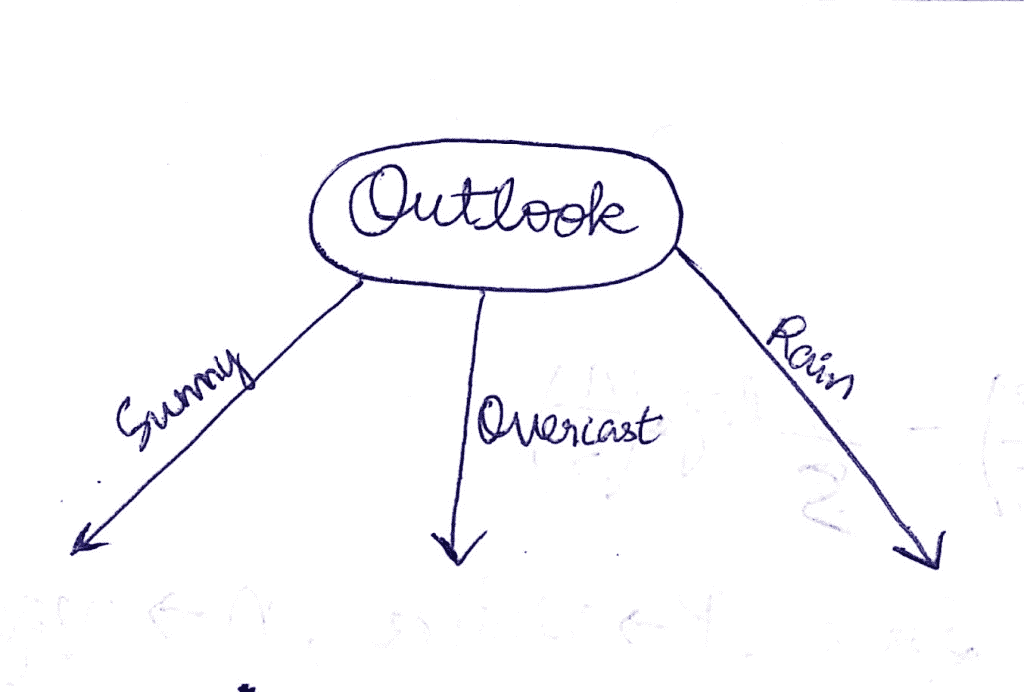 Outlook
Sunny
Overcast
Rain